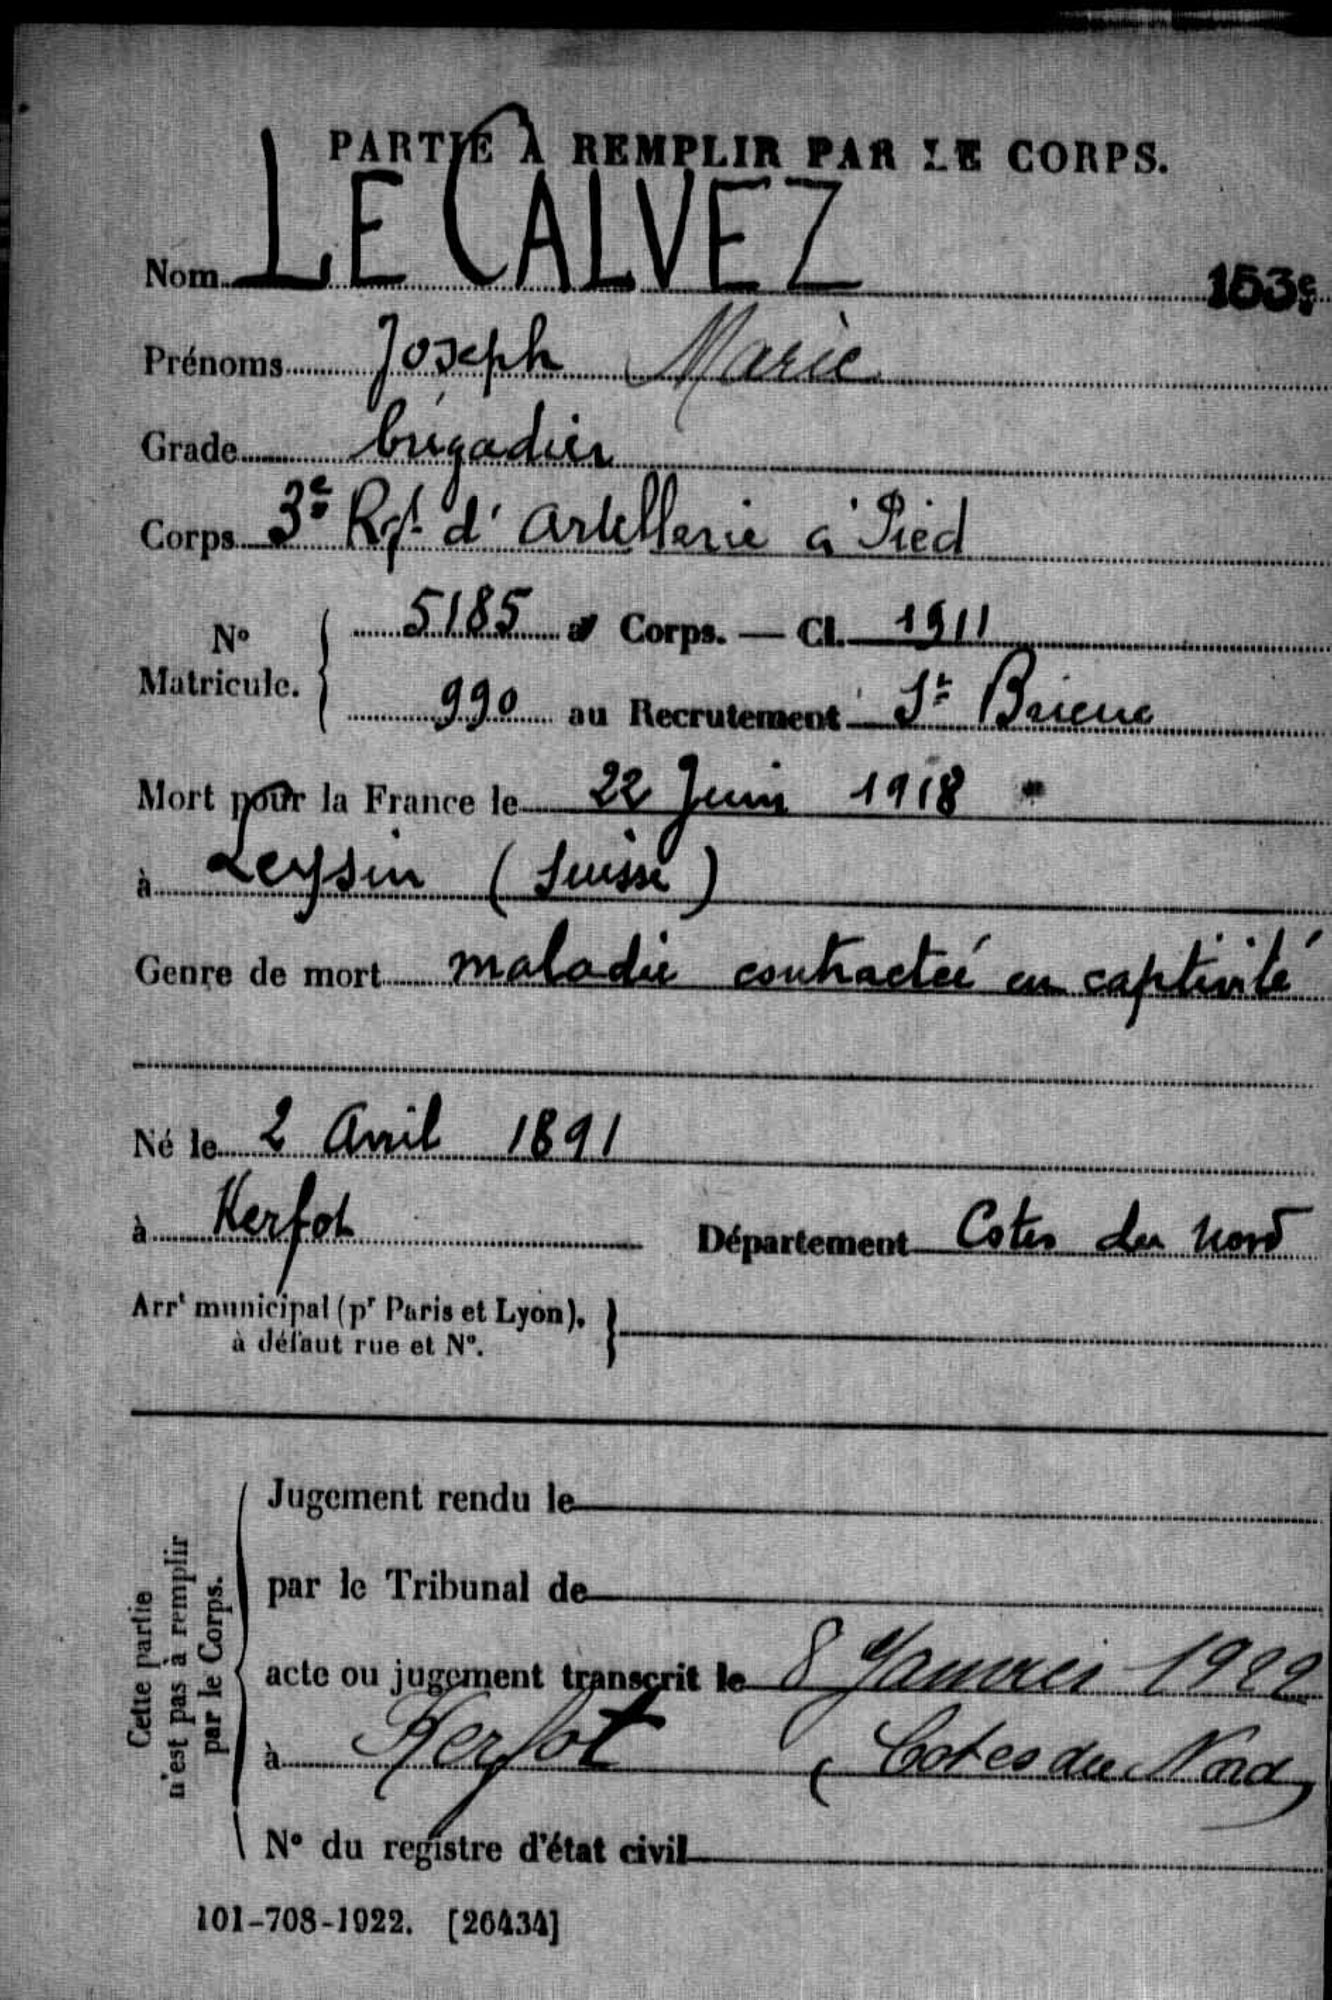 PARTIE À REMPLIR PAR LE CORPS.
Nom LE CALVEZ
153e
Prénoms Joseph Marie
Grade brigadier
Corps 3e Rgt d'Artillerie à Pied
No Matricule. 5185 au Corps. — Cl. 1911
990 au Recrutement St Brieuc
Mort pour la France le 22 Juin 1918
à Leysin (Suisse)
Genre de mort maladie contractée en captivité
Né le 2 Avril 1891
à Kerfot Département Cotes du Nord
Arrt municipal (pr Paris et Lyon),
à défaut rue et No.
Cette partie
n'est pas à remplir
par le Corps.
Jugement rendu le
par le Tribunal de
acte ou jugement transcrit le 8 Janvier 1922
à Kerfot (Cotes du Nord)
No du registre d'état civil
101-708-1922. [26434]